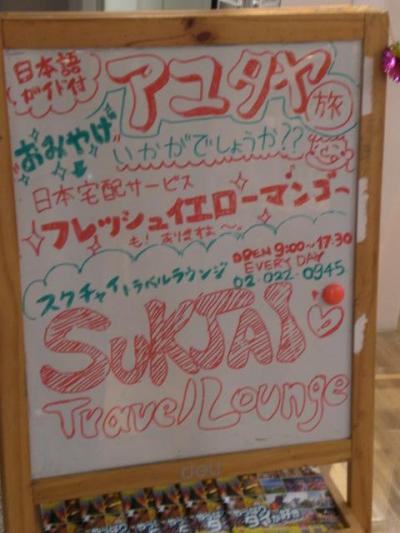 日本語
ガイド付
アユタヤ
旅
"おみやげ"
いかがでしょうか??
日本宅配サービス
フレッシュイエローマンゴー
も! ありますよ〜。
OPEN 9:00〜17:30
EVERY DAY
02-022-0945
スクチャイトラベルラウンジ
SUKJAI
Travel Lounge